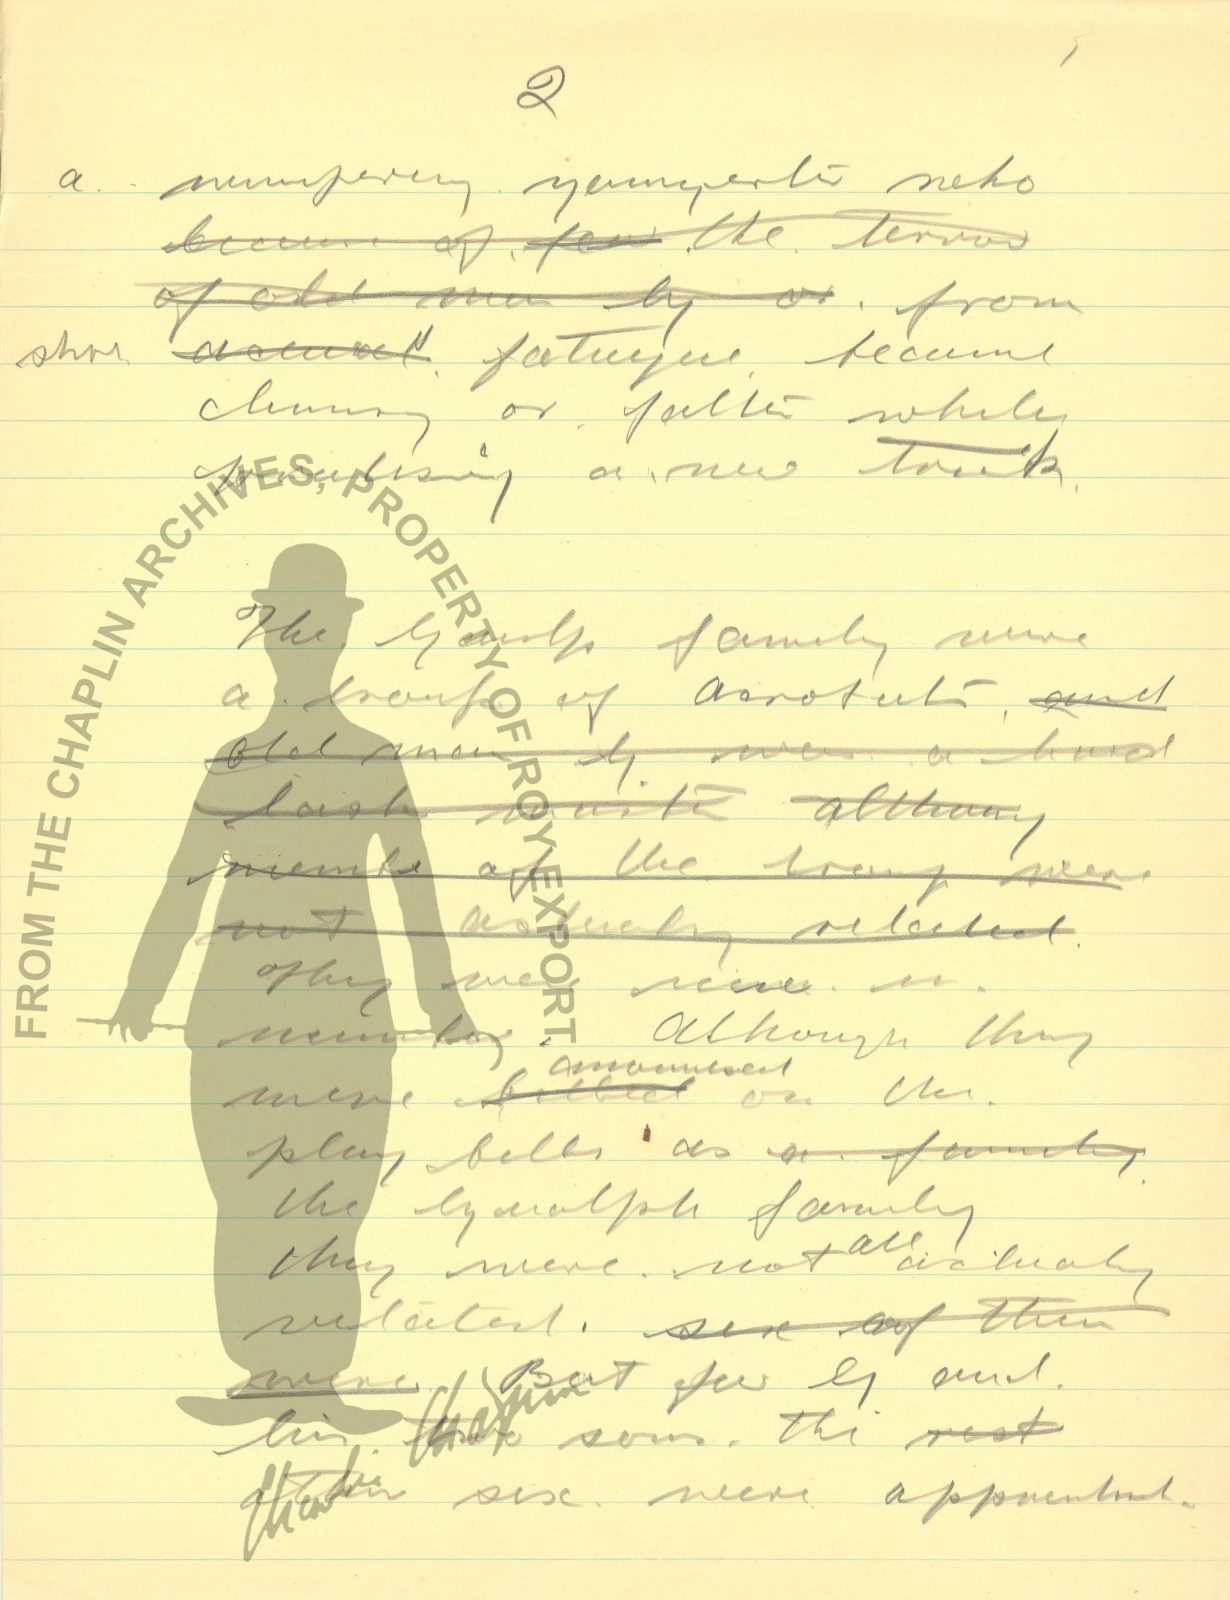 2
a. youngster who
because of fear the terror
of old man Ly or. from
shor fatugue, became
clumsy or falter while
practising a new trick.
The family were
a troup of acrobats, and
old man Ly was a hard
task master although
members of the troup were
not actually related.
They were nine in
number. Although they
announced
were billed on the
play bills as a family
the family
all
they were not actually
related. six of them
were But for Ly and
his two sons. The rest
other six were apprentised.
FROM THE CHAPLIN ARCHIVES, PROPERTY OF ROY EXPORT
Charlie Chaplin